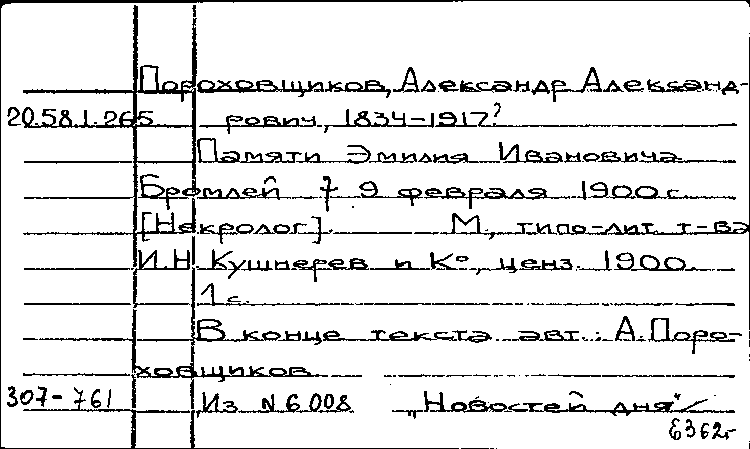 Пороховщиков, Александр Александ-
20.58.1.265 рович, 1834-1917?
Памяти Эмилия Ивановича
Бромлей † 9 февраля 1900 г.
[Некролог]. М., типо-лит. т-ва
И.Н. Кушнерев и К°, ценз. 1900.
1 с.
В конце текста авт.: А. Поро-
ховщиков.
307-761 Из N 6008 „Новостей дня"
Е362г